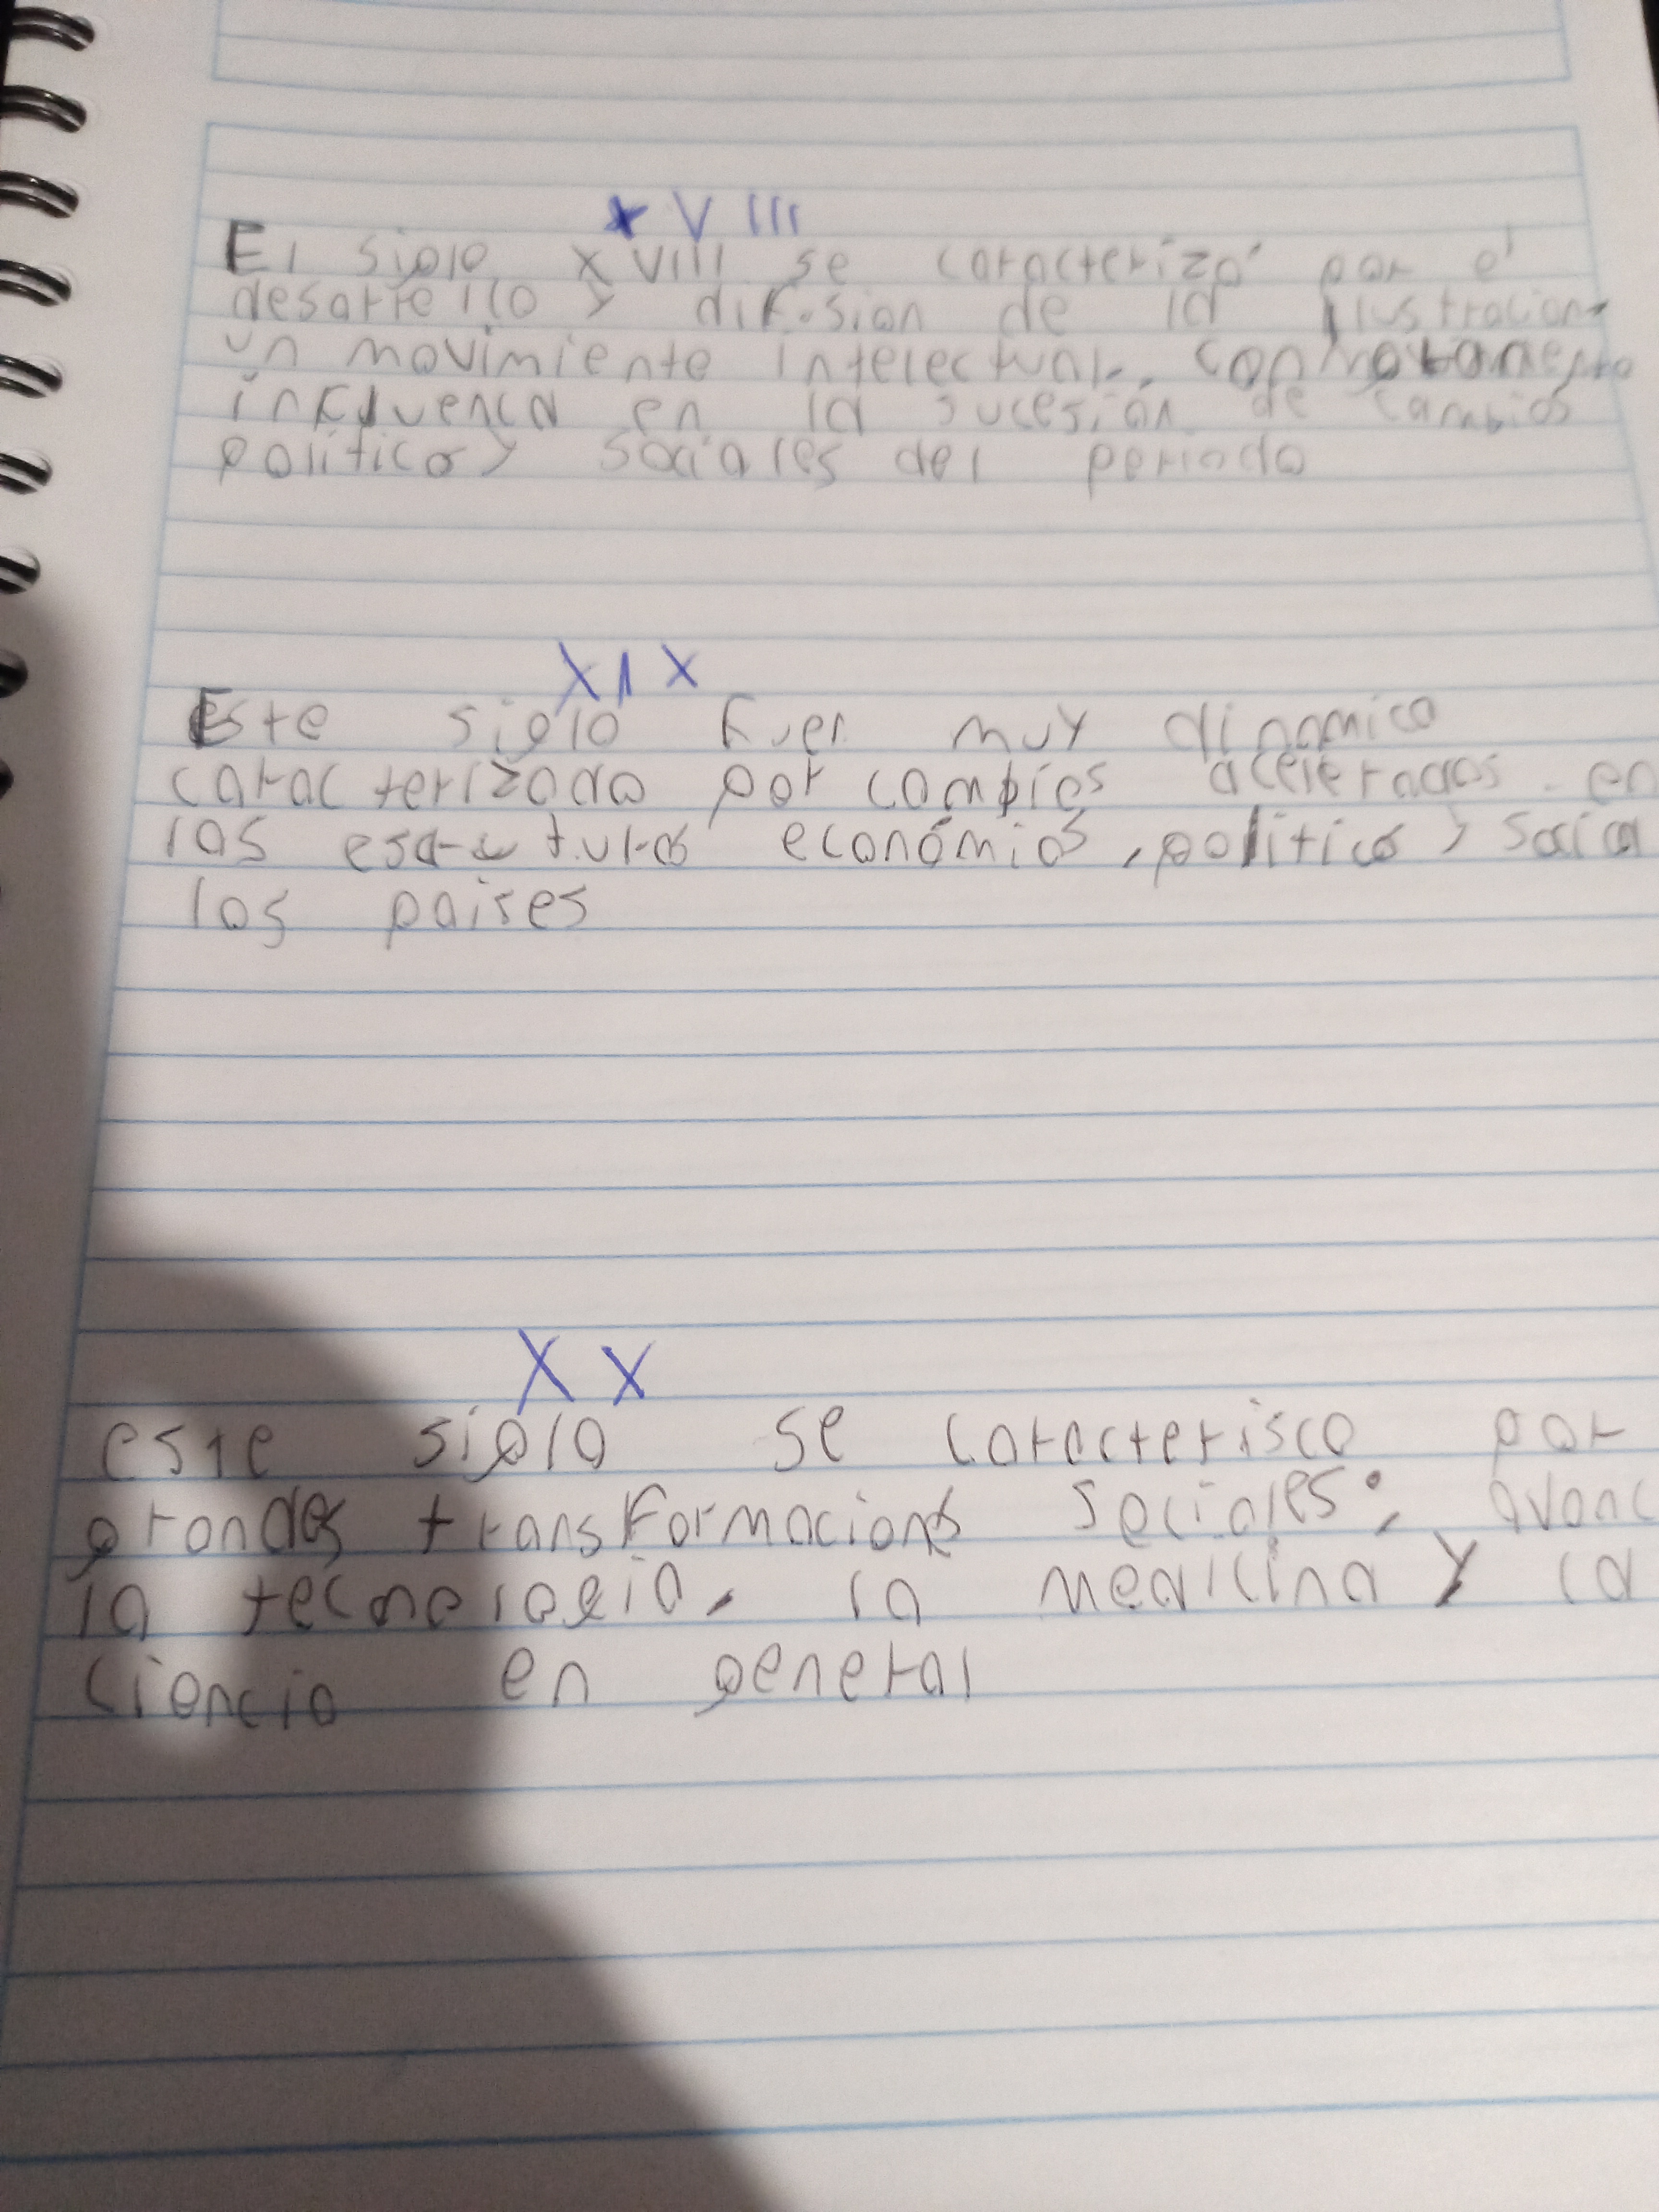 XVIII
El siglo XVIII se caracterizó por el
desarrello y difusion de la ilustracion
un movimiento intelectual, con
influenca en la sucesión de cambios
politico y sociales del periodo
XIX
Este siglo fuer muy dinamico
caracterizado por cambios acelerados en
las económias, politico y socia
los paises
XX
este siglo se caracterisco por
grandes transformacions sociales; avanc
la tecnologia, la medicina y la
ciencia en general